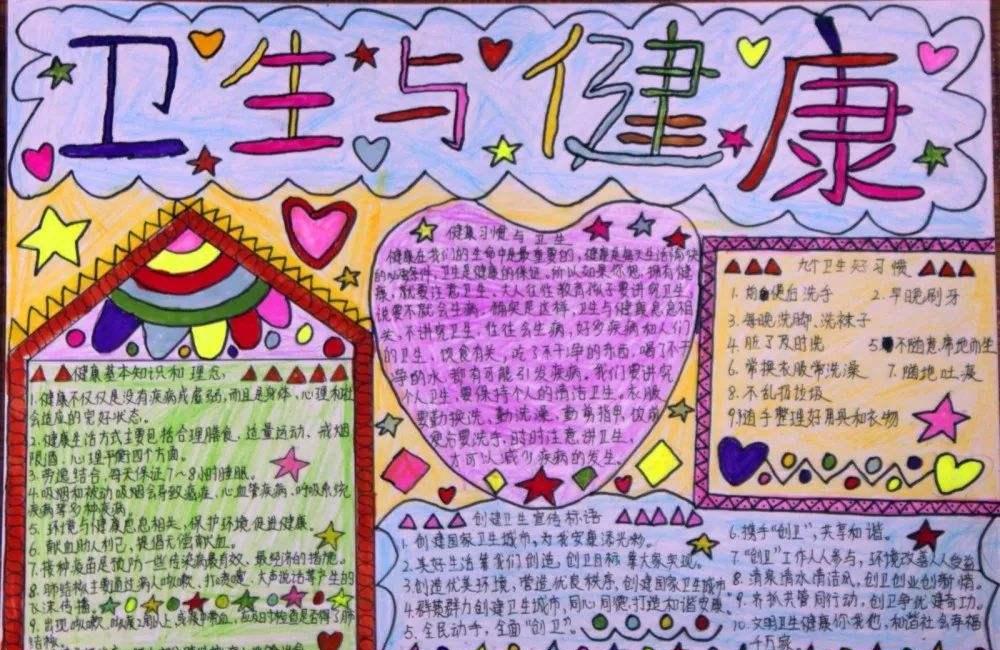 卫生与健康
健康基本知识和理念:
1.健康不仅仅是没有疾病或虚弱,而且是身体、心理和社
会适应的完好状态。
2.健康生活方式主要包括合理膳食、适量运动、戒烟
限酒、心理平衡四个方面。
3.劳逸结合,每天保证7~8小时睡眠。
4.吸烟和被动吸烟会导致癌症、心血管疾病、呼吸系统
疾病等多种疾病。
5.环境与健康息息相关,保护环境促进健康。
6.献血助人利己,提倡无偿献血。
7.接种疫苗是预防一些传染病最有效、最经济的措施。
8.肺结核主要通过病人咳嗽、打喷嚏、大声说话等产生的
飞沫传播。
9.出现咳嗽、咳痰2周以上,或痰中带血,应及时检查是否得了肺
结核。
健康习惯与卫生
健康在我们的生命中是最重要的,健康是每天生活愉快
的必要条件,卫生是健康的保证,所以如果你想拥有健
康,就要注意卫生,大人往往教育孩子要讲究卫生,
说要不就会生病,确实是这样,卫生与健康息息相
关,不讲究卫生,往往会生病,好多疾病和人们
的卫生,饮食有关,吃了不干净的东西,喝了不干
净的水,都有可能引发疾病,我们要讲究
个人卫生,要保持个人的清洁卫生。衣服
要勤换洗,勤洗澡,勤剪指甲,饭前
便后要洗手,时时注意讲卫生,
才可以减少疾病的发生。
九个卫生好习惯
1.前便后洗手 2.早晚刷牙
3.每晚洗脚、洗袜子
4.脏了及时洗 5.不随意席地而坐
6.常换衣服常洗澡 7.随地吐痰
8.不乱扔垃圾
9.随手整理好用具和衣物
创建卫生宣传标语
1.创建国家卫生城市,为我安塞添光彩。
2.美好生活靠我们创造,创卫目标靠大家实现。
3.创造优美环境,营造优良秩序,创建国家卫生城市
4.群策群力创建卫生城市,同心同德,打造和谐安康
5.全民动手,全面“创卫”。
6.携手“创卫”,共享和谐。
7.“创卫”工作人人参与,环境改善人人受益
8.清泉清水清洁风,创卫创业创新情。
9.齐抓共管同行动,创卫争优建奇功。
10.文明卫生健康你我他,和谐社会幸福
千万家